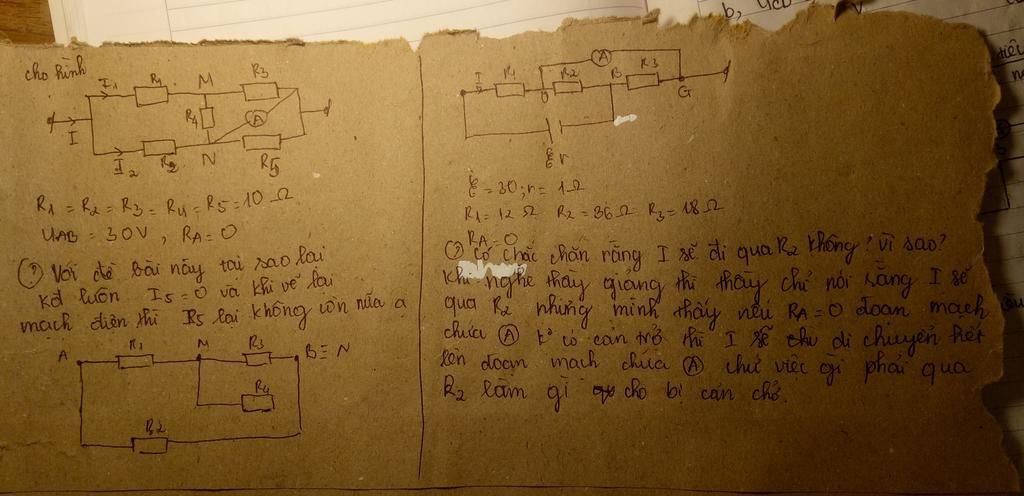 b, UCD
cho hình
I1 R1 M R3
R4 A
I
I2 R2 N R5
R1 = R2 = R3 = R4 = R5 = 10 Ω
UAB = 30V, RA = 0
(?) Với đề bài này tại sao lại
kđ luôn I5 = 0 và khi vẽ lại
mạch điện thì R5 lại không còn nữa ạ
A R1 M R3 B ≡ N
R4
R2
A
I R1 R2 B R3
D G
ξ r
ξ = 30; r = 1Ω
R1 = 12 Ω R2 = 36 Ω R3 = 18 Ω
RA = 0
(?) Có chắc chắn rằng I sẽ đi qua R2 không? vì sao?
Khi nghe thầy giảng thì thầy chỉ nói rằng I sẽ
qua R2 nhưng mình thấy nếu RA = 0 đoạn mạch
chứa (A) k° có cản trở thì I sẽ di chuyển hết
lên đoạn mạch chứa (A) chứ việc gì phải qua
R2 làm gì cho bị cản chở.